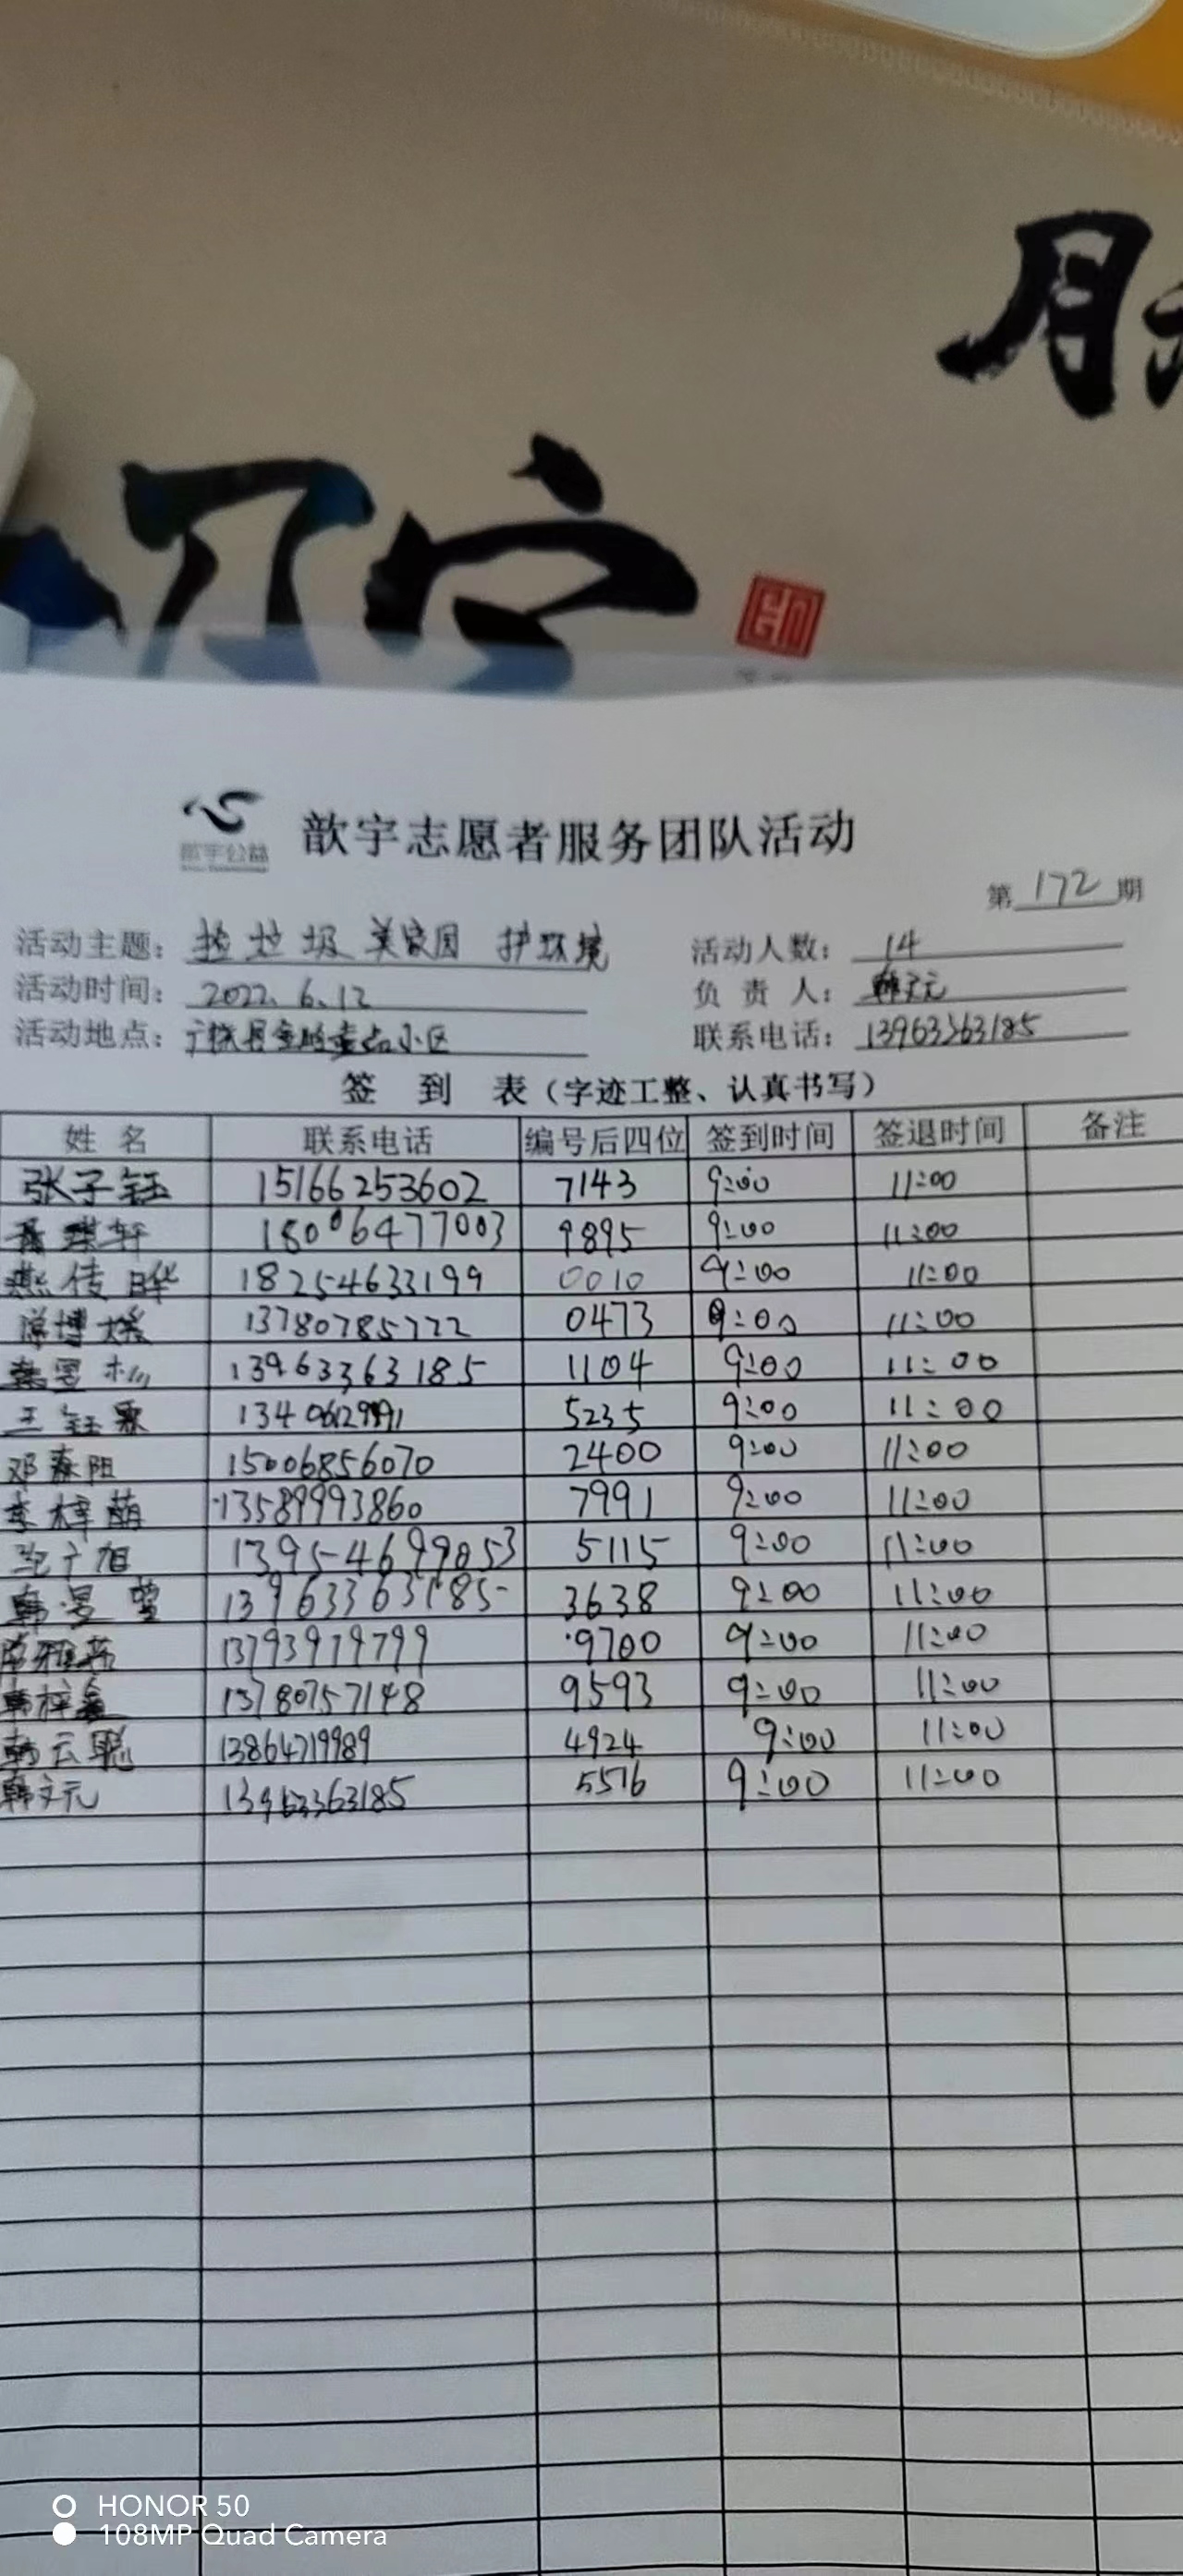 歆宇公益
歆宇志愿者服务团队活动
第 172 期
活动主题: 捡垃圾 美家园 护环境 活动人数: 14
活动时间: 2022.6.12 负责人: 韩文元
活动地点: 小区 联系电话: 13963363185
签 到 表(字迹工整、认真书写)
姓名 联系电话 编号后四位 签到时间 签退时间 备注
张子钰 15166253602 7143 9:00 11:00
轩 18006477003 9895 9:00 11:00
燕传晔 18254633199 0010 9:00 11:00
博 13780785722 0473 9:00 11:00
13963363185 1104 9:00 11:00
王钰 5235 9:00 11:00
邓 阳 15006856070 2400 9:00 11:00
李梓萌 13589993860 7991 9:00 11:00
旭 13954699053 5115 9:00 11:00
韩 13963363185 3638 9:00 11:00
13793979799 9700 9:00 11:00
韩梓鑫 13780757148 9593 9:00 11:00
韩云聪 13864719989 4924 9:00 11:00
韩文元 13963363185 5516 9:00 11:00
HONOR 50
108MP Quad Camera